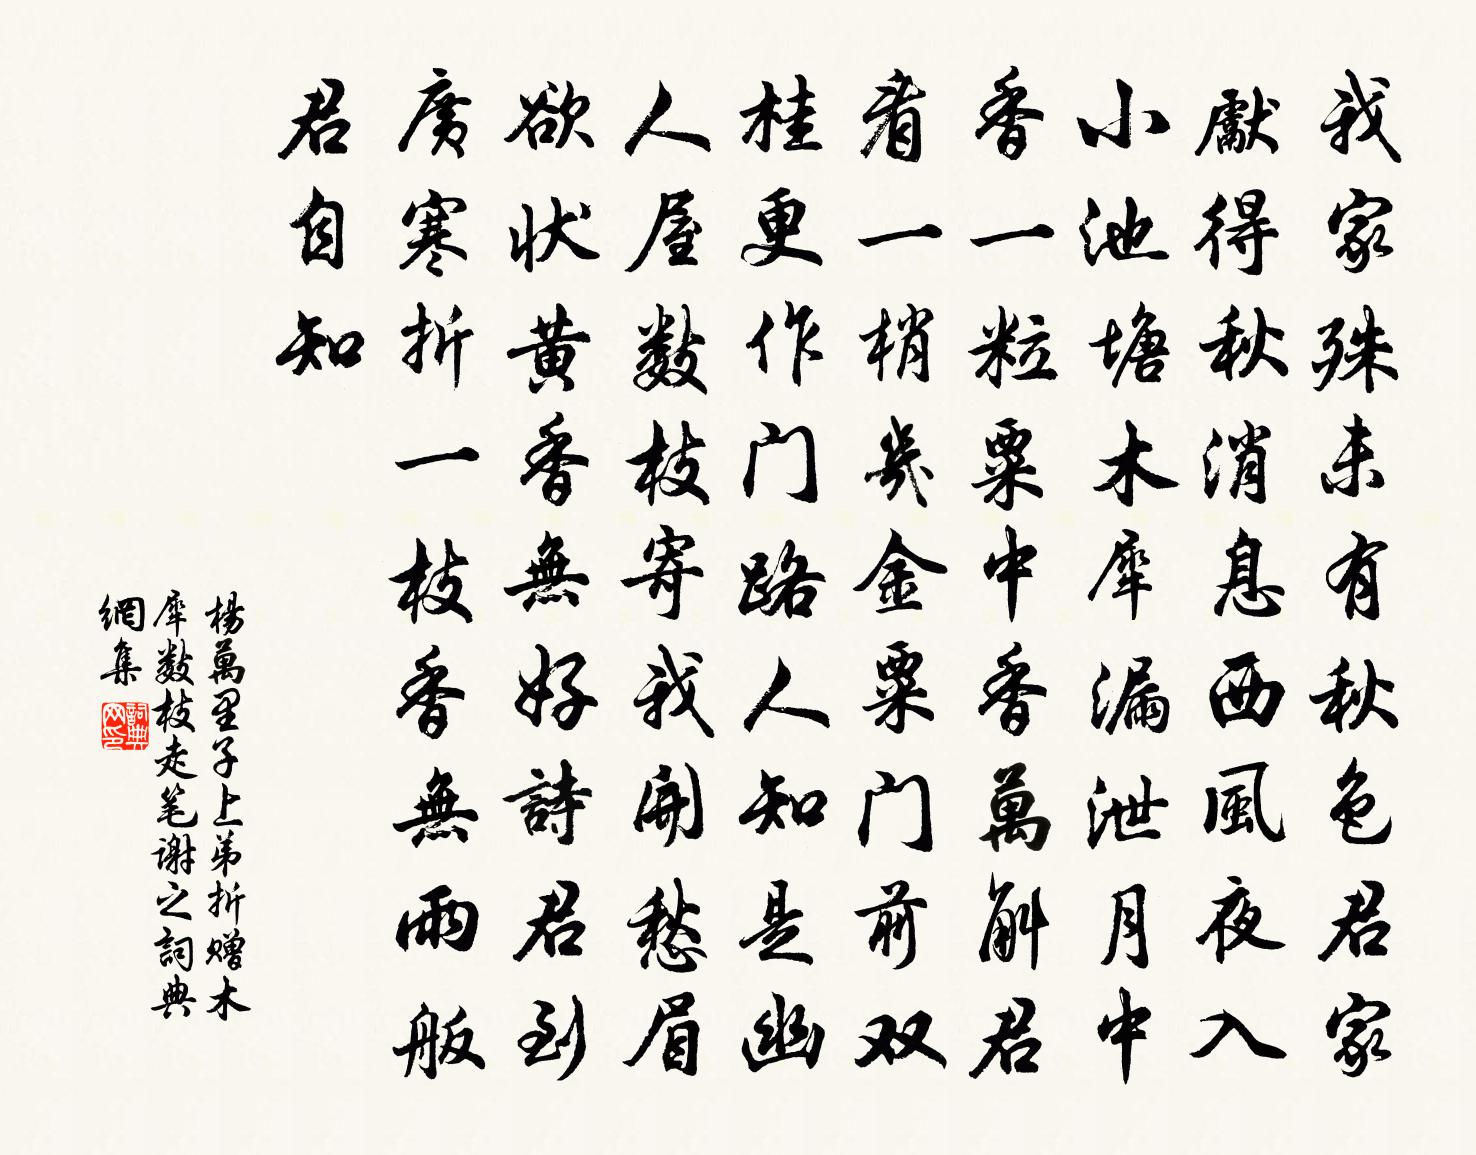 我家殊未有秋色君家
獻得秋消息西風夜入
小池塘木犀漏泄月中
香一粒粟中香萬斛君
看一梢幾金粟门前双
桂更作门路人知是幽
人屋數枝寄我開愁眉
欲状黄香無好詩君到
廣寒折一枝香無兩般
君自知
楊萬里子上弟折赠木
犀數枝走笔謝之詞典
網集
詞典
网印